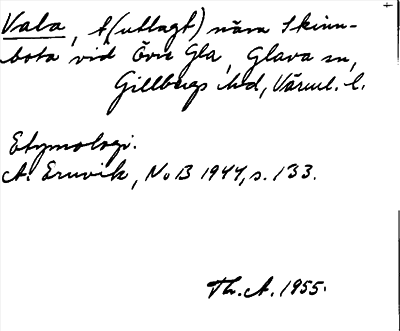 Vala, t(utlagt) nära Skinn-
bota vid Övre Gla, Glava sn,
Gillbergs hd, Värml. l.
Etymologi.
A. Ernvik, NoB 1944, s. 133.
Th. A. 1955.